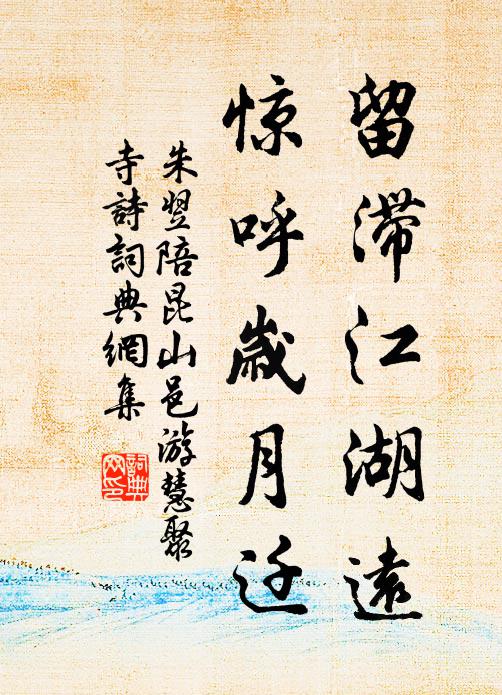 留滞江湖遠
惊呼歲月迁
朱翌陪昆山邑游慧聚
寺詩詞典網集
詞典
网印